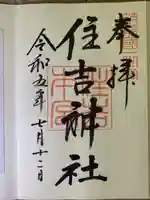 奉拝
住吉神社
令和五年七月十二日